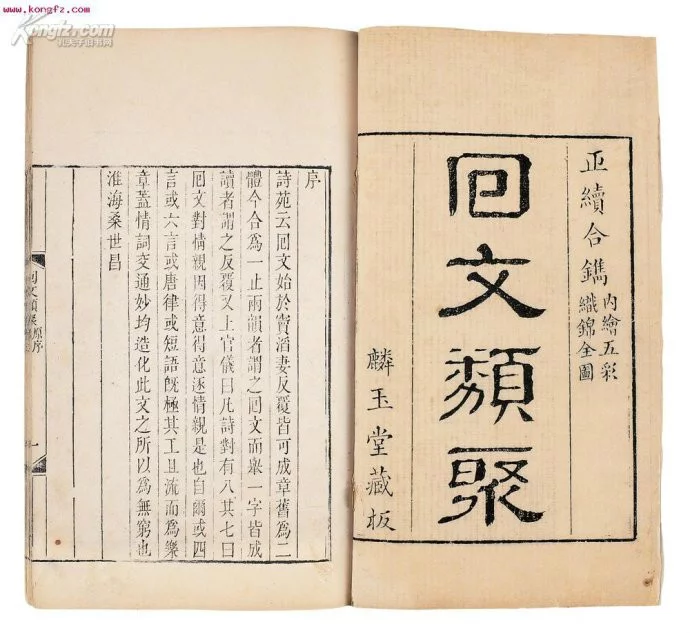 www.kongfz.com
Kongfz.com
孔夫子旧书网
正續合鐫
內繪五彩
織錦全圖
回文類聚
麟玉堂藏板
序
詩苑云回文始於竇滔妻反覆皆可成章舊為二
體今合為一止兩韻者謂之回文而舉一字皆成
讀者謂之反覆又上官儀曰凡詩對有八其七曰
回文對情親因得意得意逐情親是也自爾或四
言或六言或唐律或短語旣極其工且流而為樂
章蓋情詞交通妙均造化此文之所以為無窮也
淮海桑世昌
回文類聚原序
一